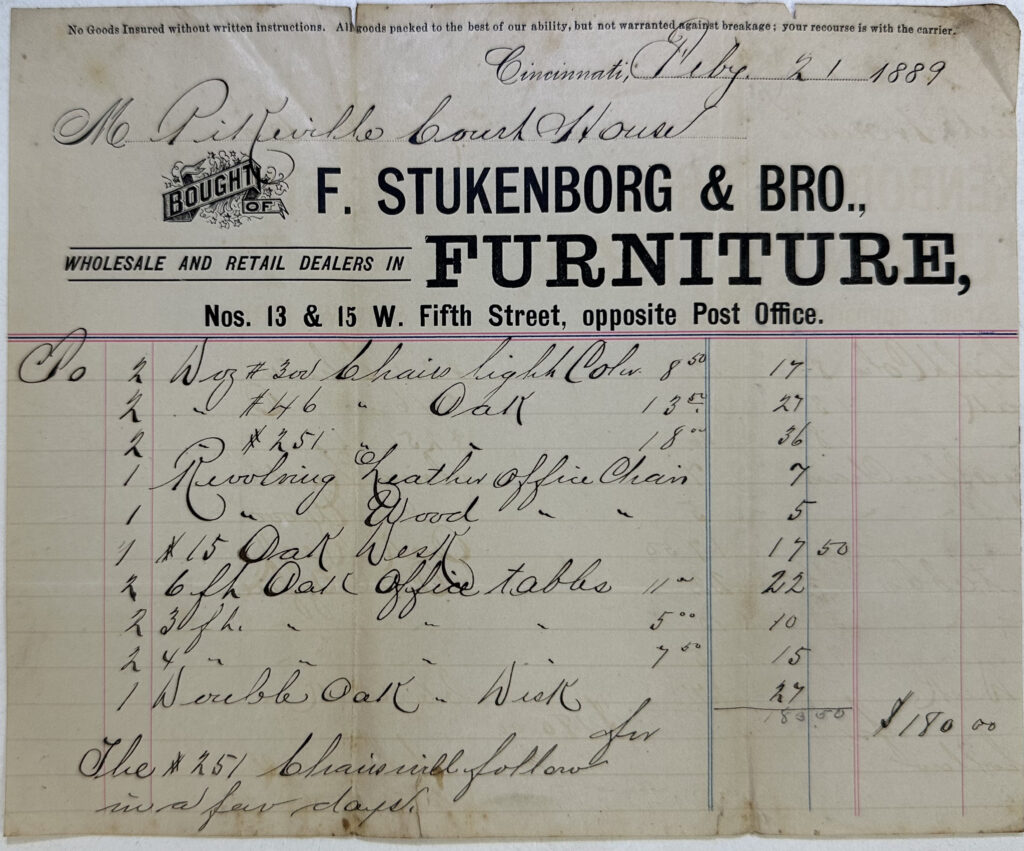 No Goods Insured without written instructions. All goods packed to the best of our ability, but not warranted against breakage; your recourse is with the carrier.
Cincinnati, Feby. 21 1889
M Pikeville Court House
BOUGHT OF
F. STUKENBORG & BRO.,
WHOLESALE AND RETAIL DEALERS IN FURNITURE,
Nos. 13 & 15 W. Fifth Street, opposite Post Office.
To 2 Doz # 300 Chairs light Color 8 50 17
2 " # 46 " Oak 13 50 27
2 # 251 " 18 00 36
1 Revolving Leather office Chair 7
1 " Wood " " 5
1 # 15 Oak Desk 17 50
2 6 ft Oak office tables 11 00 22
2 3 ft. " " " 5 00 10
2 4 " " " 7 50 15
1 Double Oak " Desk 27
183.50
for $ 180 00
The # 251 Chairs will follow
in a few days.